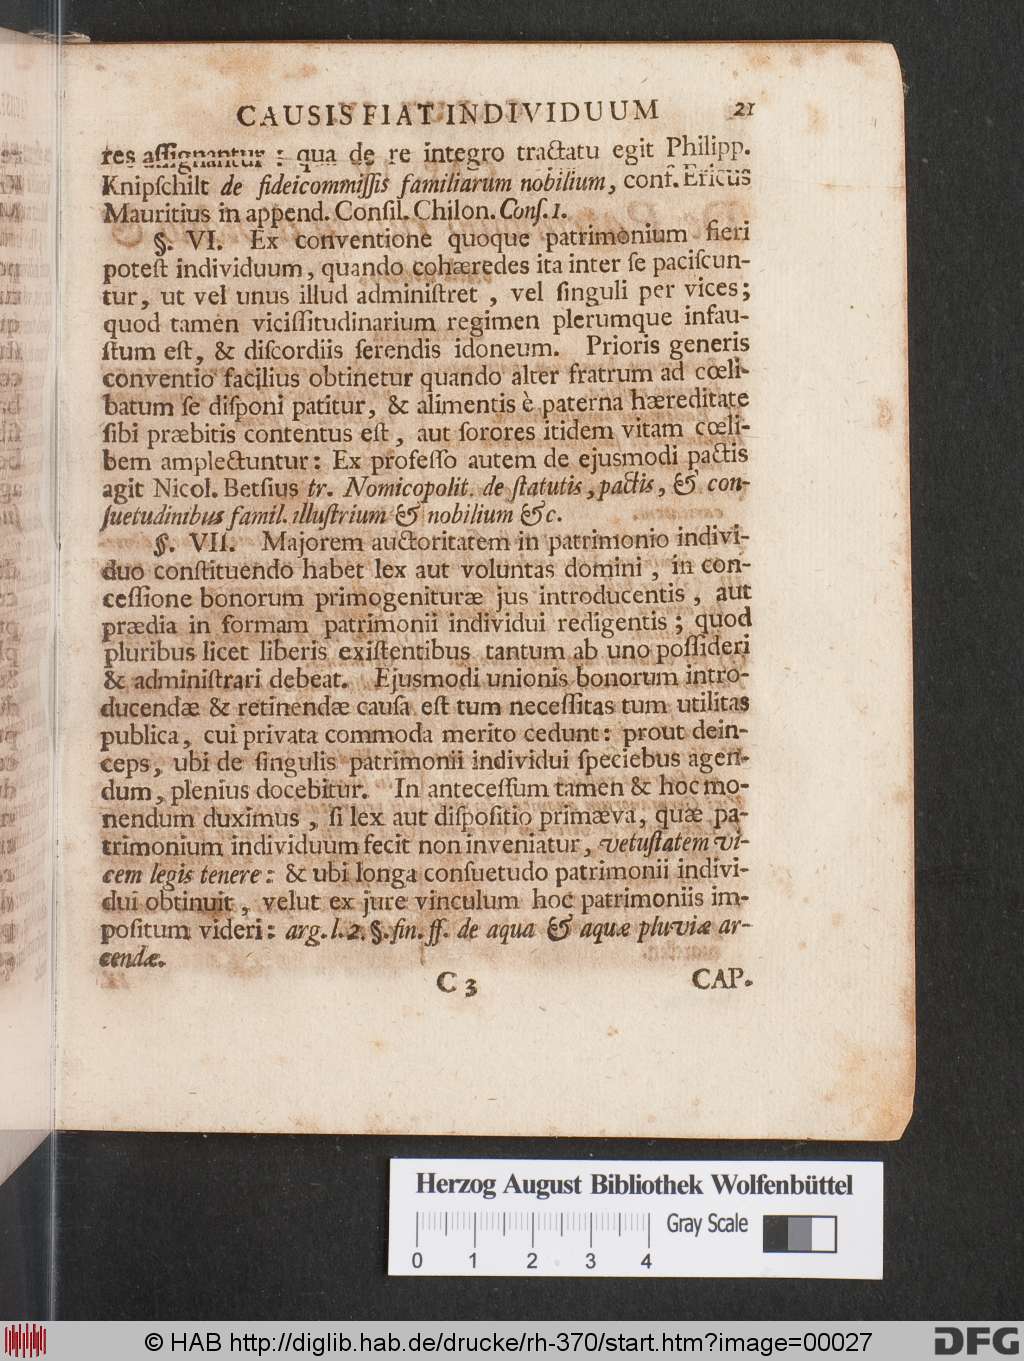 CAUSIS FIAT INDIVIDUUM 21
res aſſignantur : qua de re integro tractatu egit Philipp.
Knipſchilt de fideicommiſſis familiarum nobilium, conf. Ericus
Mauritius in append. Conſil. Chilon. Conſ. 1.
§. VI. Ex conventione quoque patrimonium fieri
poteſt individuum, quando cohæredes ita inter ſe paciſcun-
tur, ut vel unus illud adminiſtret , vel ſinguli per vices;
quod tamen viciſſitudinarium regimen plerumque infau-
ſtum eſt, & diſcordiis ſerendis idoneum. Prioris generis
conventio facilius obtinetur quando alter fratrum ad cœli-
batum ſe diſponi patitur, & alimentis è paterna hæreditate
ſibi præbitis contentus eſt, aut ſorores itidem vitam cœli-
bem amplectuntur: Ex profeſſo autem de ejusmodi pactis
agit Nicol. Betſius tr. Nomicopolit. de ſtatutis, pactis, & con-
ſuetudinibus famil. illuſtrium & nobilium &c.
§. VII. Majorem auctoritatem in patrimonio indivi-
duo conſtituendo habet lex aut voluntas domini , in con-
ceſſione bonorum primogenituræ jus introducentis , aut
prædia in formam patrimonii individui redigentis ; quod
pluribus licet liberis exiſtentibus tantum ab uno poſſideri
& adminiſtrari debeat. Ejusmodi unionis bonorum intro-
ducendæ & retinendæ cauſa eſt tum neceſſitas tum utilitas
publica, cui privata commoda merito cedunt: prout dein-
ceps, ubi de ſingulis patrimonii individui ſpeciebus agen-
dum, plenius docebitur. In anteceſſum tamen & hoc mo-
nendum duximus , ſi lex aut diſpoſitio primæva, quæ pa-
trimonium individuum fecit non inveniatur, vetuſtatem vi-
cem legis tenere: & ubi longa conſuetudo patrimonii indivi-
dui obtinuit, velut ex jure vinculum hoc patrimoniis im-
poſitum videri: arg. l. 2. §. fin. ff. de aqua & aquæ pluviæ ar-
cendæ.
C 3 CAP.
Herzog August Bibliothek Wolfenbüttel
Gray Scale
0 1 2 3 4
© HAB http://diglib.hab.de/drucke/rh-370/start.htm?image=00027
DFG